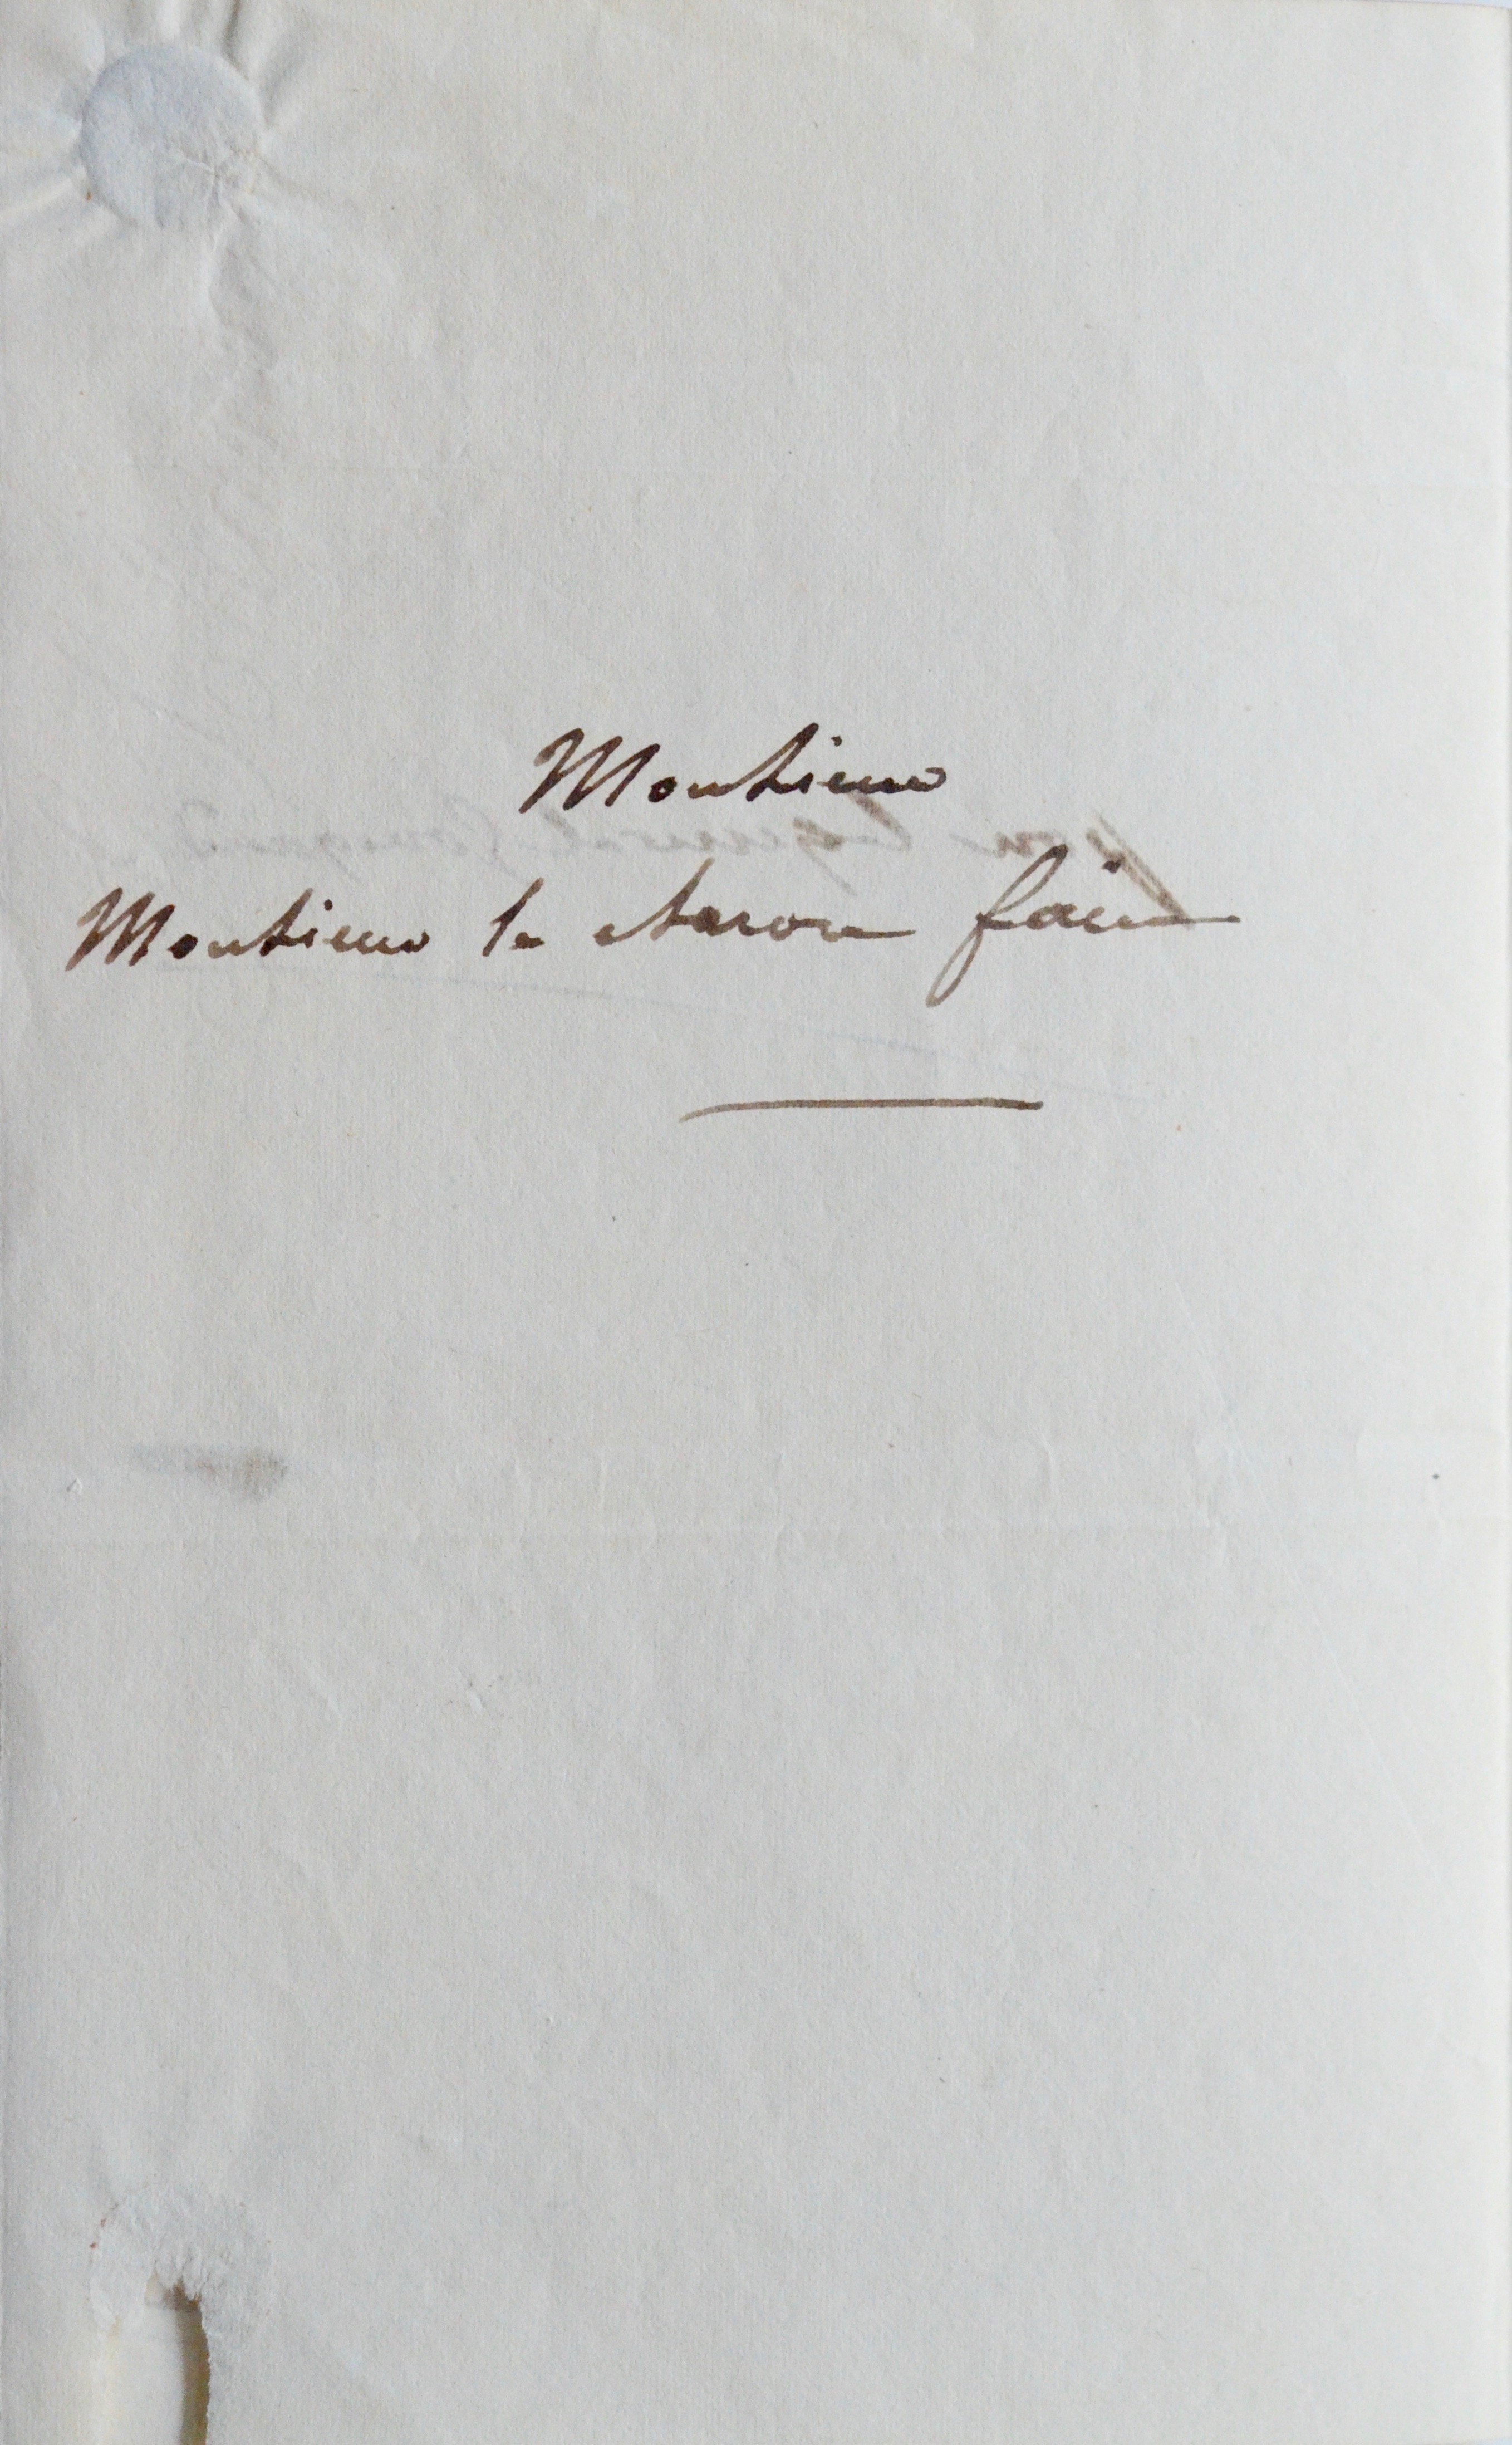 Monsieur
Monsieur le Baron fain